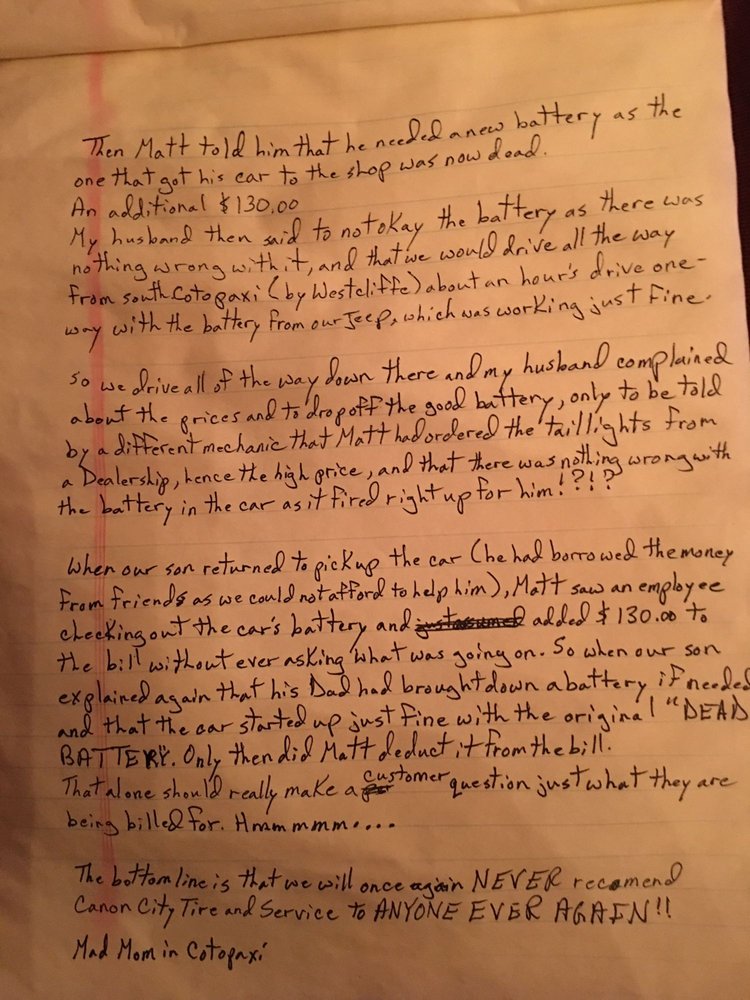 Then Matt told him that he needed a new battery as the
one that got his car to the shop was now dead.
An additional $130.00
My husband then said to not okay the battery as there was
nothing wrong with it, and that we would drive all the way
from south Cotopaxi (by Westcliffe) about an hour's drive one-
way with the battery from our Jeep, which was working just fine.
So we drive all of the way down there and my husband complained
about the prices and to drop off the good battery, only to be told
by a different mechanic that Matt had ordered the taillights from
a Dealership, hence the high price, and that there was nothing wrong with
the battery in the car as it fired right up for him!?!?
When our son returned to pickup the car (he had borrowed the money
from friends as we could not afford to help him), Matt saw an employee
checking out the car's battery and just assumed added $130.00 to
the bill without ever asking what was going on. So when our son
explained again that his Dad had brought down a battery if needed
and that the car started up just fine with the original "DEAD
BATTERY. Only then did Matt deduct it from the bill.
That alone should really make a customer question just what they are
being billed for. Hmmmmm....
The bottom line is that we will once again NEVER recomend
Canon City Tire and Service to ANYONE EVER AGAIN!!
Mad Mom in Cotopaxi